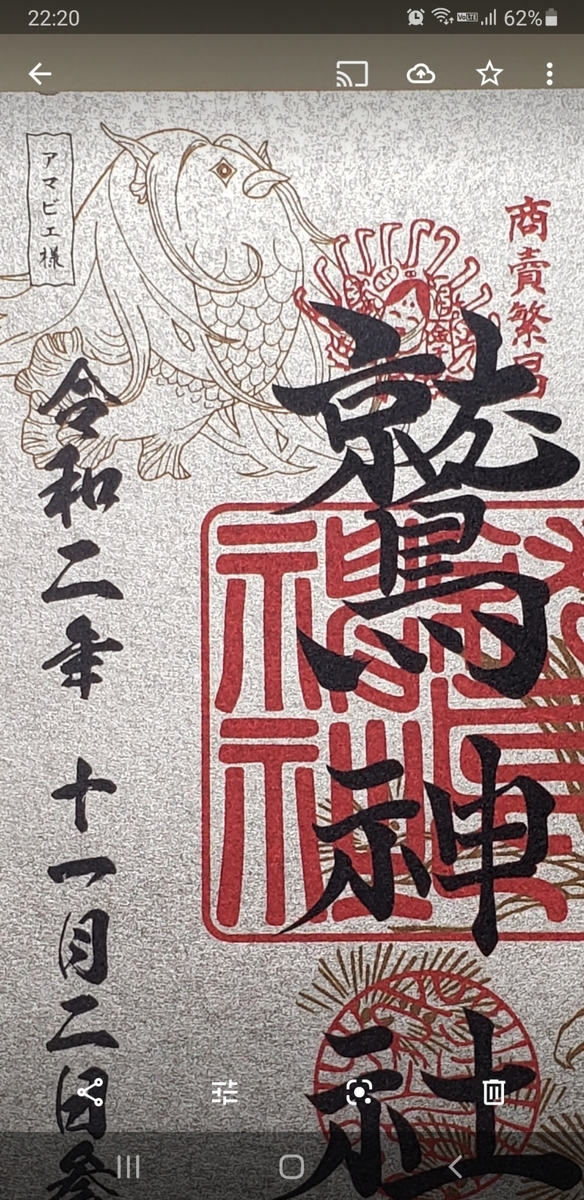 22:20
62%
商賣繁昌
鷲神社
アマビエ様
令和二年 十一月二日参